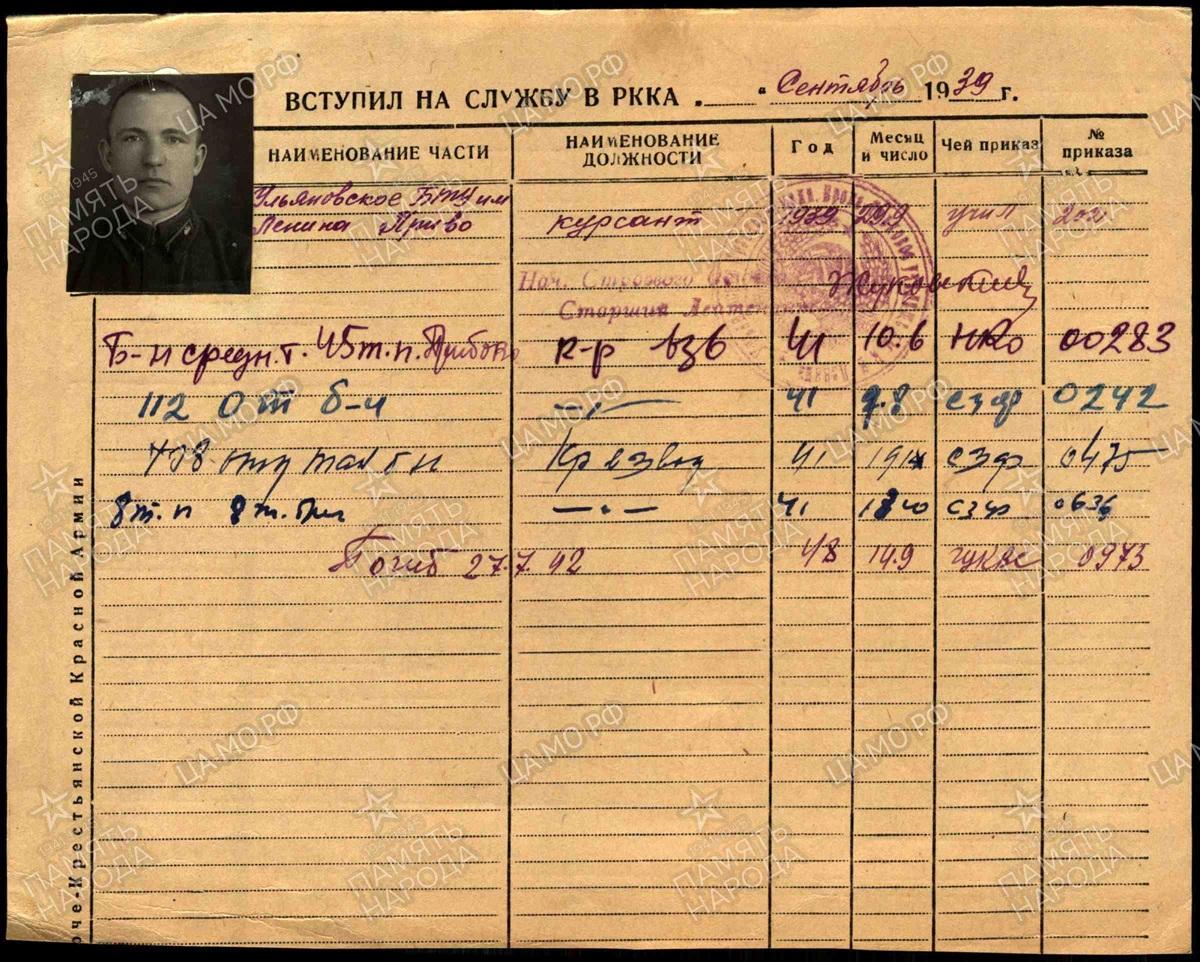 ВСТУПИЛ НА СЛУЖБУ В РККА „ “ Сентябрь 1939 г.
НАИМЕНОВАНИЕ ЧАСТИ НАИМЕНОВАНИЕ ДОЛЖНОСТИ Год Месяц и число Чей приказ № приказа
Ульяновское БТУ им
Ленина Приво курсант 1939 29.9 учил
Нач. Строевого
Старший Лейтенант
Б-н средн. т. 45 т.п. к-р взв 41 10.6 НКО 00283
112 От б-н —„— 41 9.8 сзф 0242
408 отд танк бн Кр взвод 41 сзф 0475
8 т.п 8 т. бриг —„— 41 сзф 0636
Погиб 27.7 42 48 14.9 гук вс 0973
оче-Крестьянской Красной Армии
ПАМЯТЬ НАРОДА
1945
ЦАМО.РФ